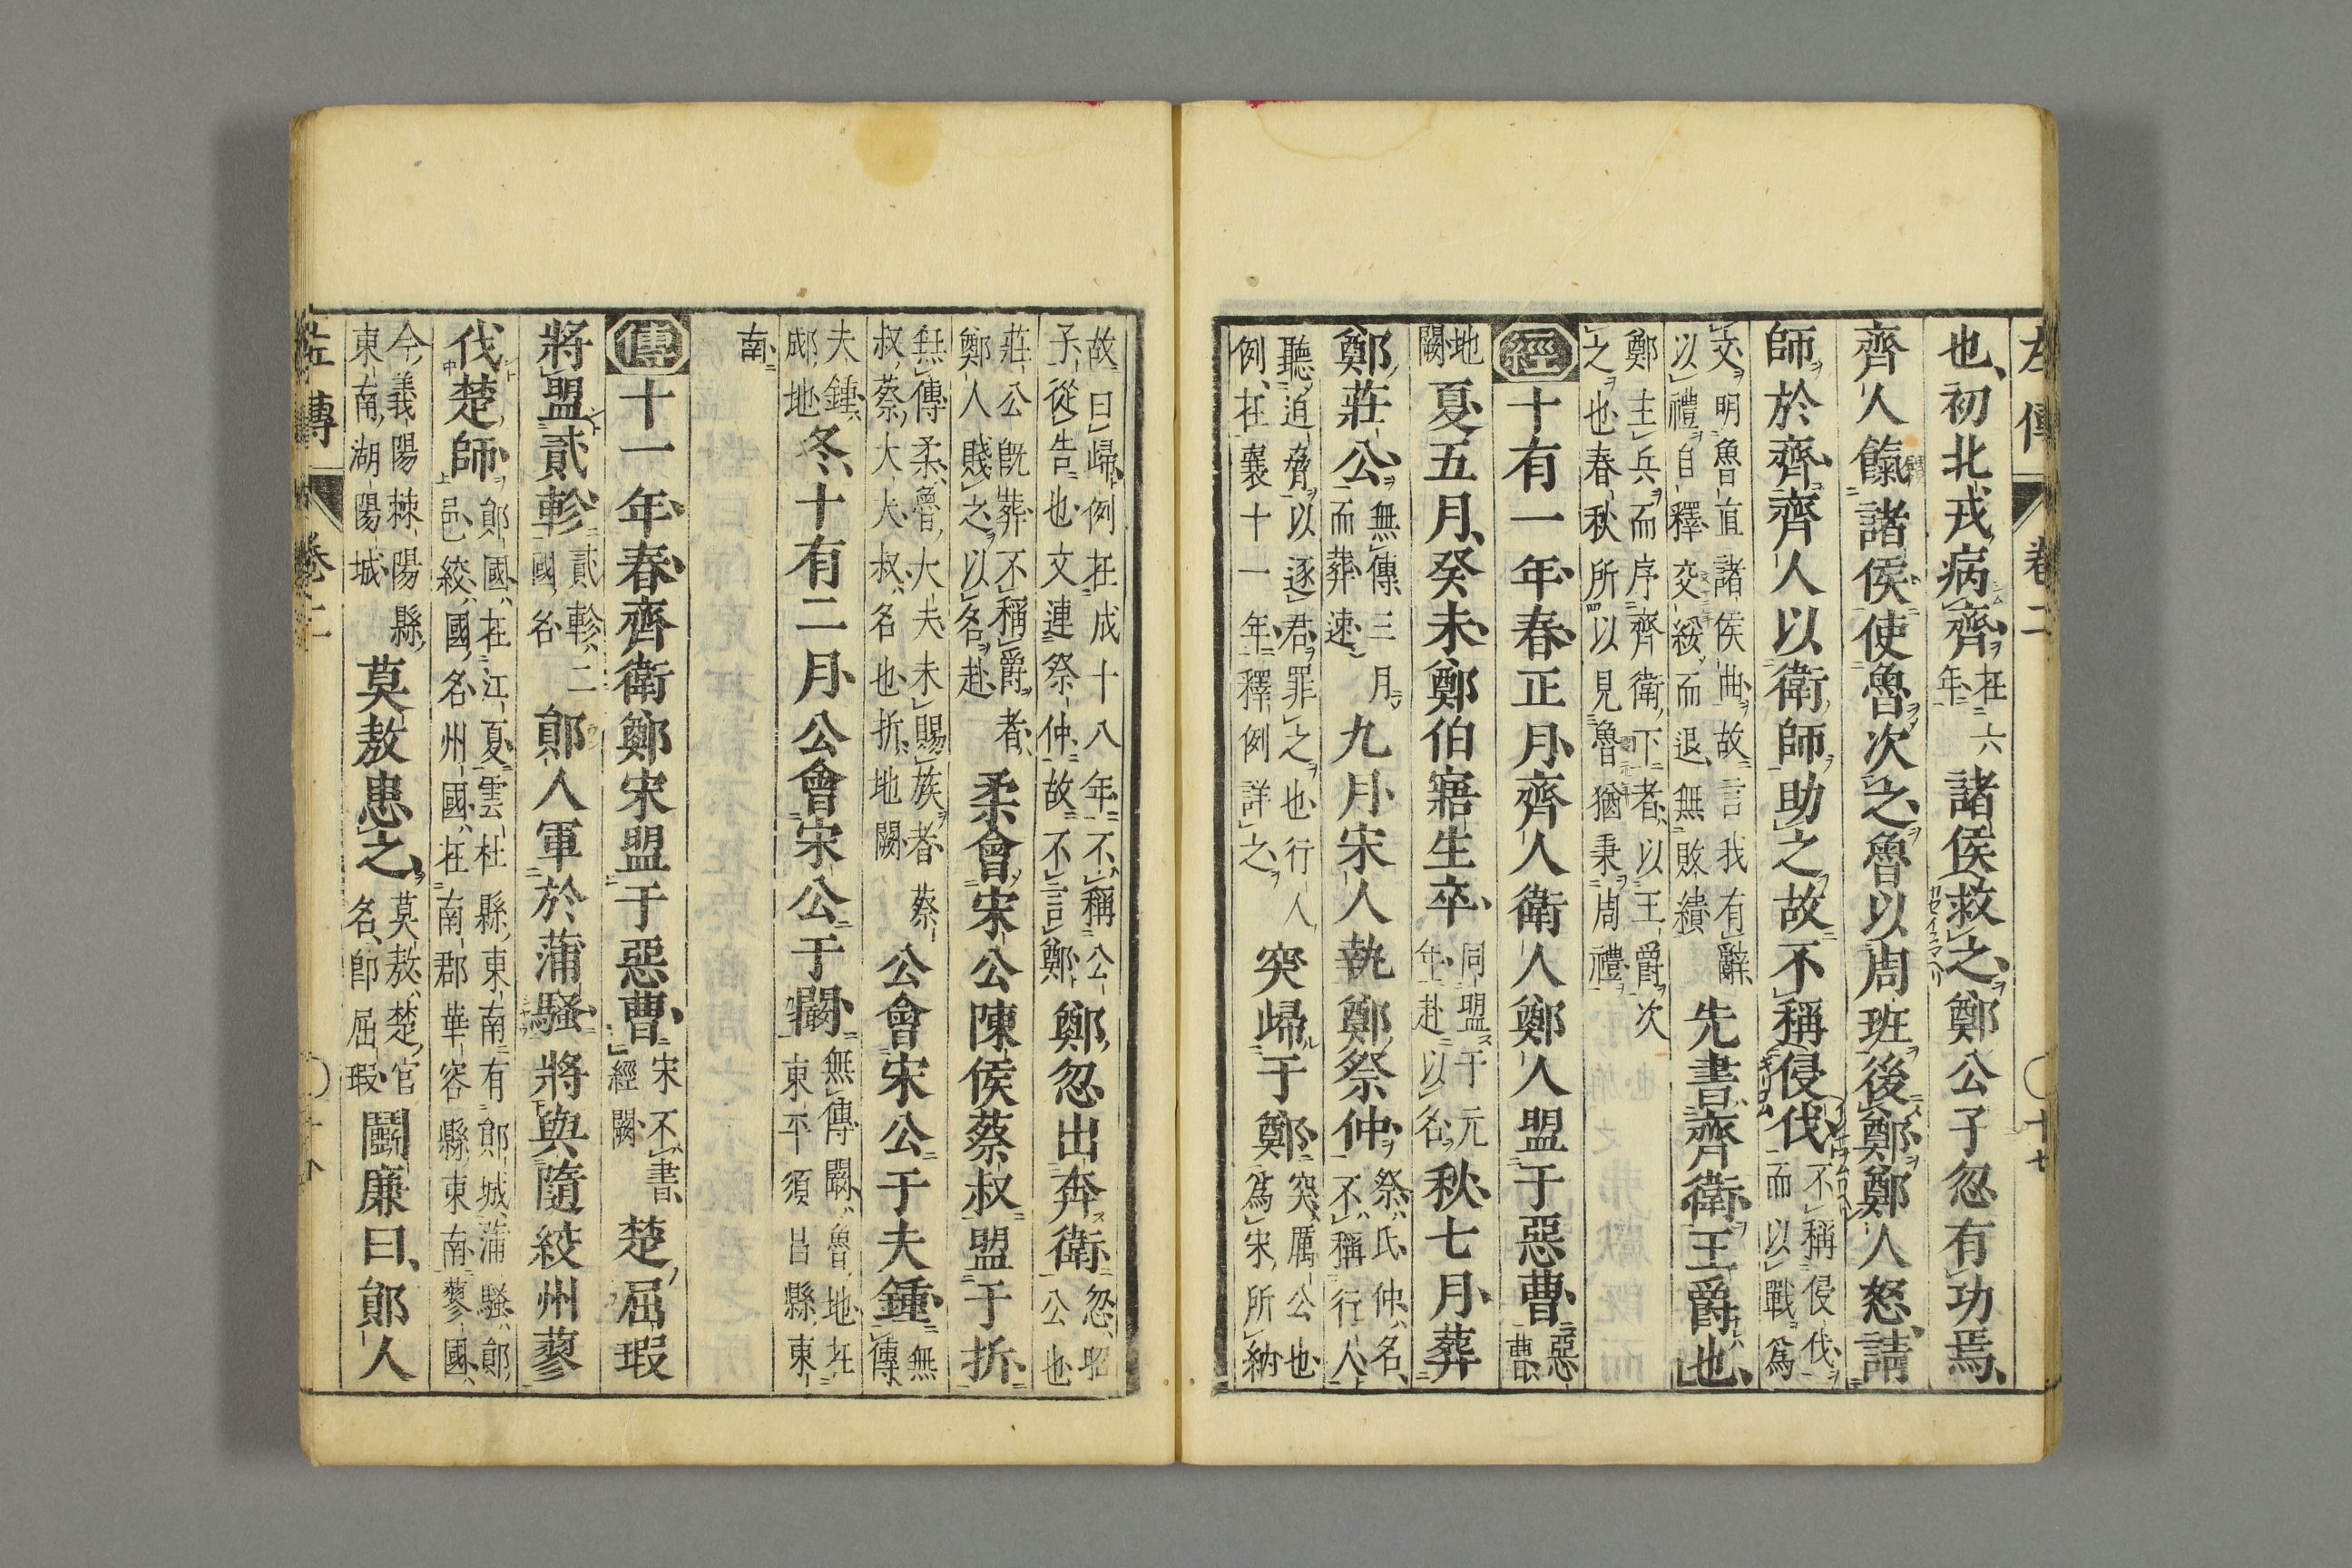 左傳 卷二 〇十七
也初北戎病齊在六年諸侯救之鄭公子忽有功焉
齊人餼諸侯使魯次之魯以周班後鄭鄭人怒請
師於齊齊人以衛師助之故不稱侵伐不稱侵伐而以戰爲
文明魯直諸侯曲故言我有辭以禮自釋交綏而退無敗績先書齊衛王爵也
鄭主兵而序齊衛下者以王爵次之也春秋所以見魯猶秉周禮
經十有一年春正月齊人衛人鄭人盟于惡曹惡曹
地闕夏五月癸未鄭伯寤生卒同盟于元年赴以名秋七月葬
鄭莊公無傳三月而葬速九月宋人執鄭祭仲祭氏仲名不稱行人
聽迫脅以逐君罪之也行人例在襄十一年釋例詳之突歸于鄭突厲公也爲宋所納
故曰歸例在成十八年不稱公子從告也文連祭仲故不言鄭鄭忽出奔衛忽昭公也
莊公既葬不稱爵者鄭人賤之以名赴柔會宋公陳侯蔡叔盟于折
無傳柔魯大夫未賜族者蔡叔蔡大夫叔名也折地闕公會宋公于夫鍾無傳
夫鍾郕地冬十有二月公會宋公于闞無傳闞魯地在東平須昌縣東
南
傳十一年春齊衛鄭宋盟于惡曹宋不書經闕楚屈瑕
將盟貳軫貳軫二國名鄖人軍於蒲騷將與隨絞州蓼
伐楚師鄖國在江夏雲杜縣東南有鄖城蒲騷鄖邑絞國名州國在南郡華容縣東南蓼國
今義陽棘陽縣東南湖陽城莫敖患之莫敖楚官名卽屈瑕鬬廉曰鄖人
左傳 卷二